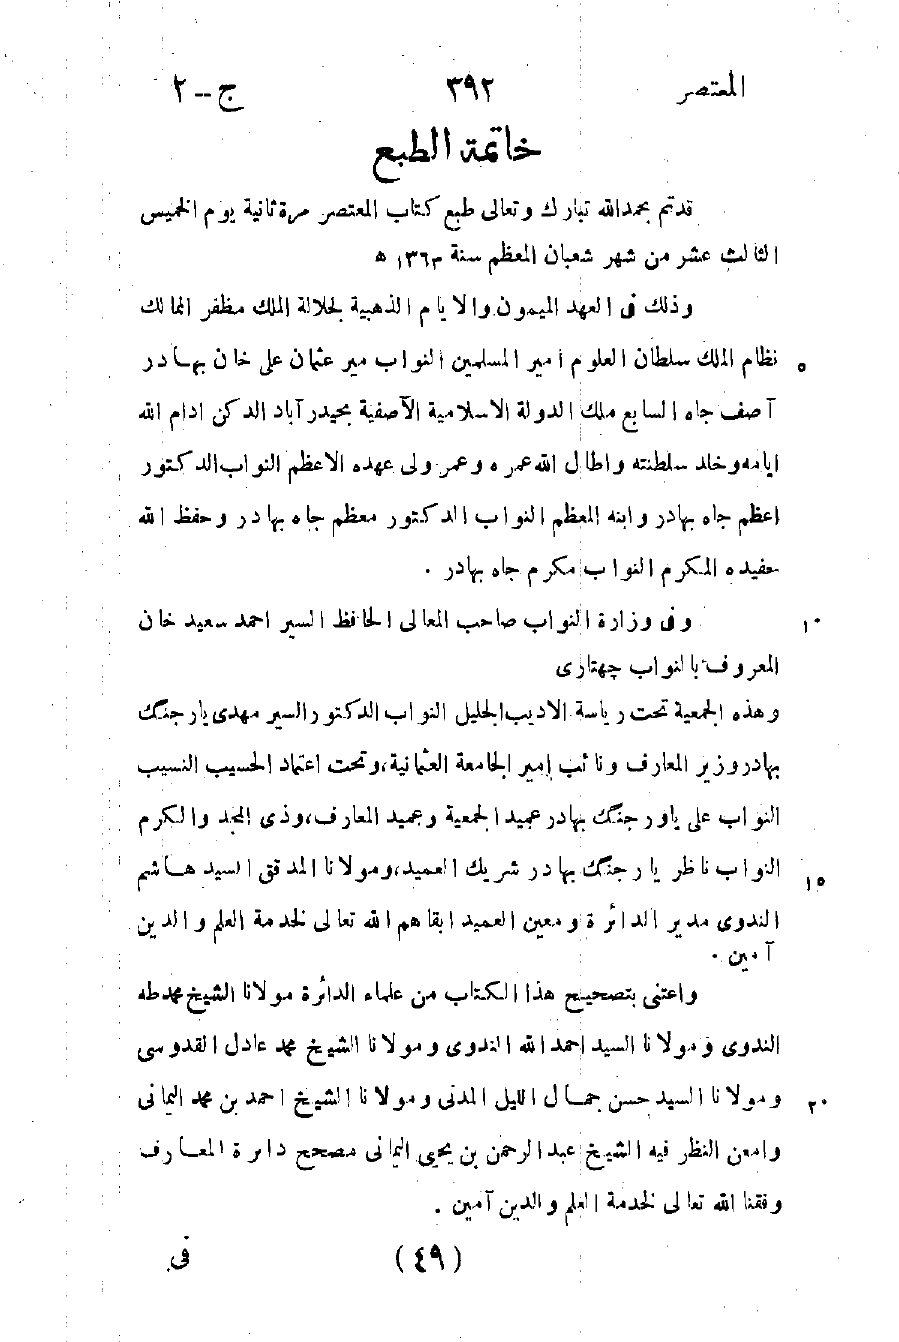 المعتصر ٣٩٢ ج--٢
خاتمة الطبع
قدتم بحمدالله تبارك وتعالى طبع كتاب المعتصر مرة ثانية يوم الخميس
الثالث عشر من شهر شعبان المعظم سنة ١٣٦٣ ھ
وذلك فى العهد الميمون والايام الذهبية لجلالة الملك مظفر الممالك
نظام الملك سلطان العلوم امير المسلمين النواب مير عثمان على خان بهادر ٥
آصف جاه السابع ملك الدولة الاسلامية الآصفية بحيدرآباد الدكن ادام الله
ايامه وخلد سلطنته واطال الله عمره وعمر ولى عهده الاعظم النواب الدكتور
اعظم جاه بهادر وابنه المعظم النواب الدكتور معظم جاه بهادر وحفظ الله
حفيده المكرم النواب مكرم جاه بهادر .
وفى وزارة النواب صاحب المعالى الحافظ السير احمد سعيد خان ١٠
المعروف بالنواب جهتارى
وهذه الجمعية تحت رياسة الاديب الجليل النواب الدكتور السير مهدى يار جنگ
بهادر وزير المعارف ونائب امير الجامعة العثمانية، وتحت اعتماد الحسيب النسيب
النواب على ياور جنگ بهادر عميد الجمعية وعميد المعارف، وذى المجد والكرم
النواب ناظر يار جنگ بهادر شريك العميد، ومولانا المدقق السيد هاشم ١٥
الندوى مدير الدائرة ومعين العميد ابقاهم الله تعالى لخدمة العلم والدين
آمين .
واعتنى بتصحيح هذا الكتاب من علماء الدائرة مولانا الشيخ محمد طه
الندوى ومولانا السيد احمد الله الندوى ومولانا الشيخ محمد عادل القدوسى
ومولانا السيد حسن جمال الليل المدنى ومولانا الشيخ احمد بن محمد اليمانى ٢٠
وامعن النظر فيه الشيخ عبدالرحمن بن يحيى اليمانى مصحح دائرة المعارف
وفقنا الله تعالى لخدمة العلم والدين آمين .
(٤٩) فى